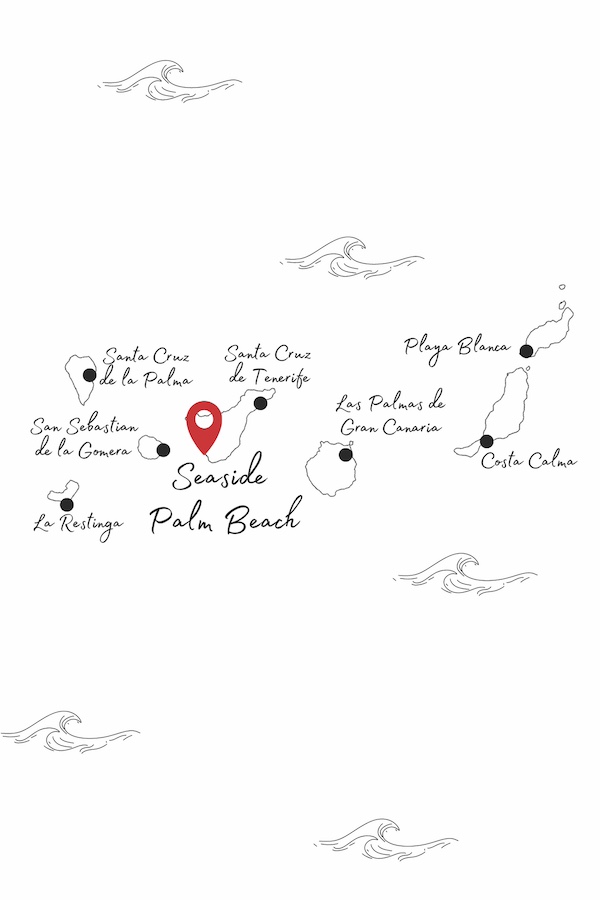 Playa Blanca
Santa Cruz
de la Palma
Santa Cruz
de Tenerife
Las Palmas de
Gran Canaria
San Sebastian
de la Gomera
Costa Calma
Seaside
Palm Beach
La Restinga